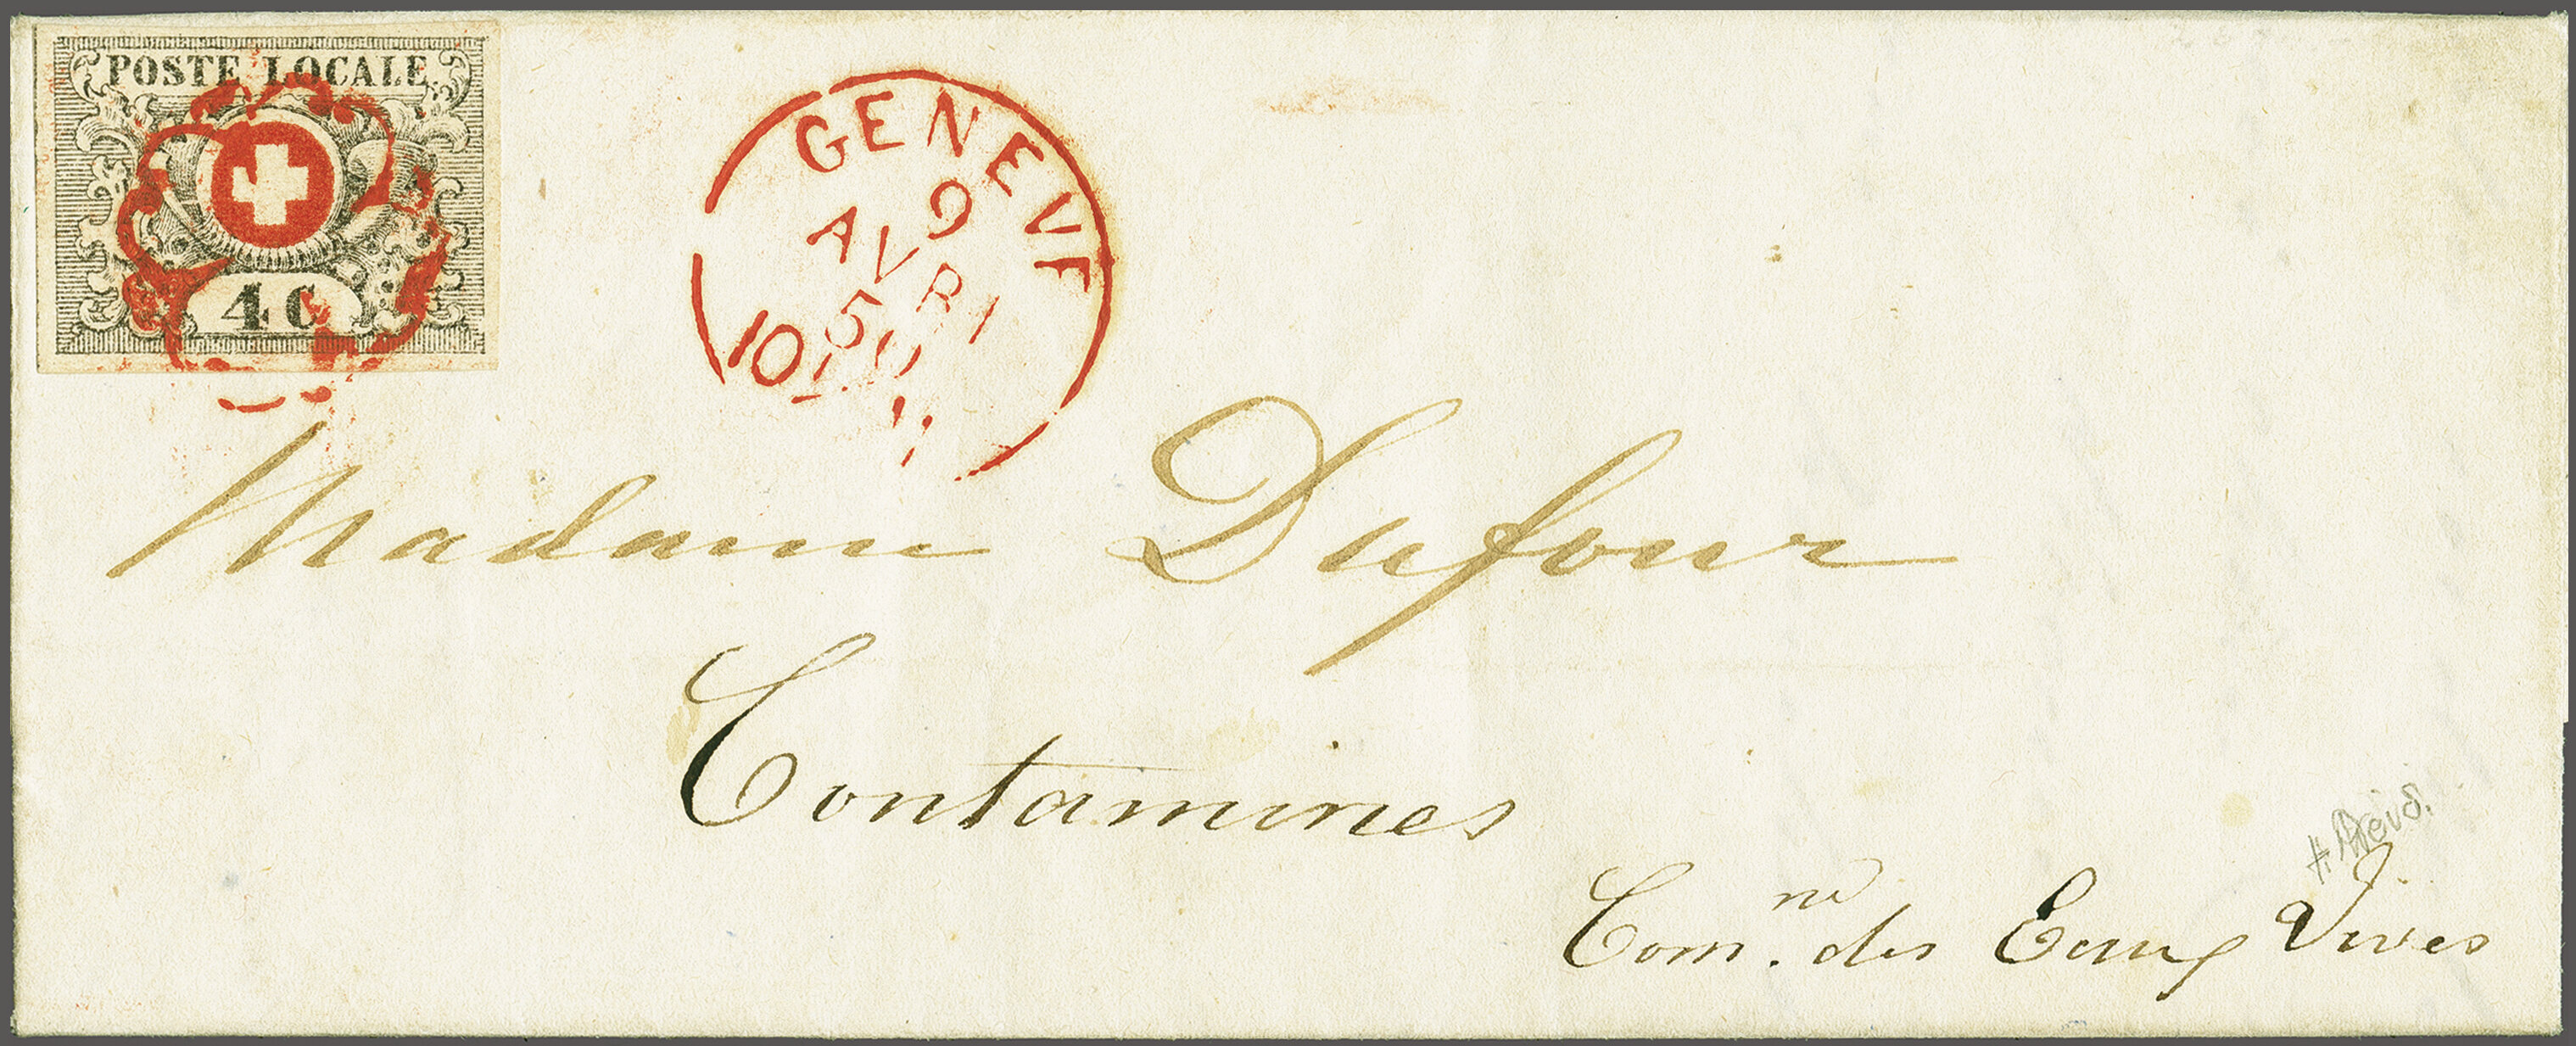 POSTE LOCALE
4 C
GENEVE
9
AVRI
50
10
Madame Dufour
Contamines
Com.ne des Eaux Vives